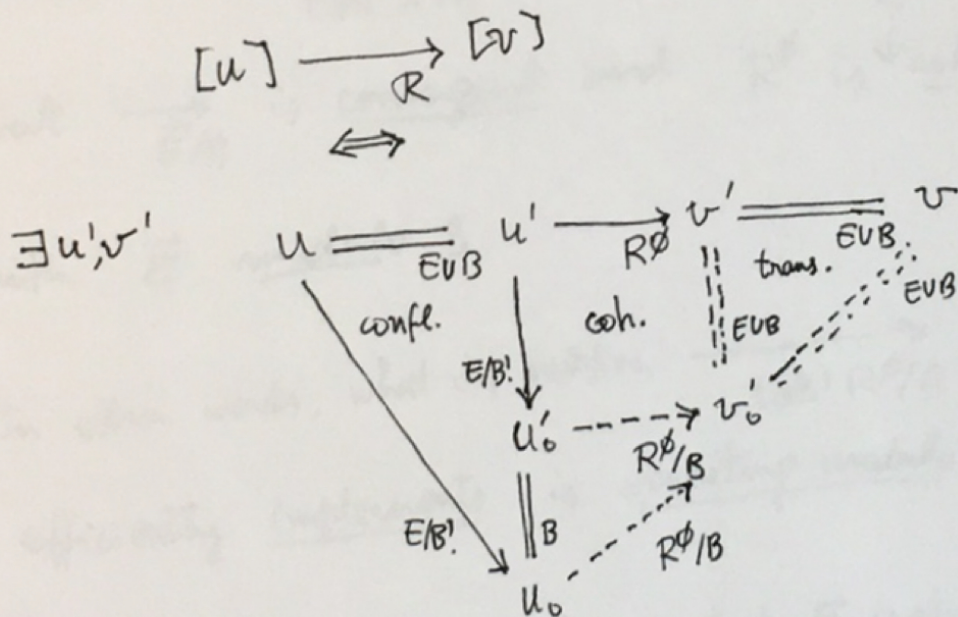 [u] → [v]
R
⟺
∃u',v' u ≡ u' → v' ≡ v
E∪B R∅ E∪B
confl. coh. trans.
E∪B E∪B
E/B!
u'₀ ⇢ v'₀
R∅/B
E/B! B R∅/B
u₀